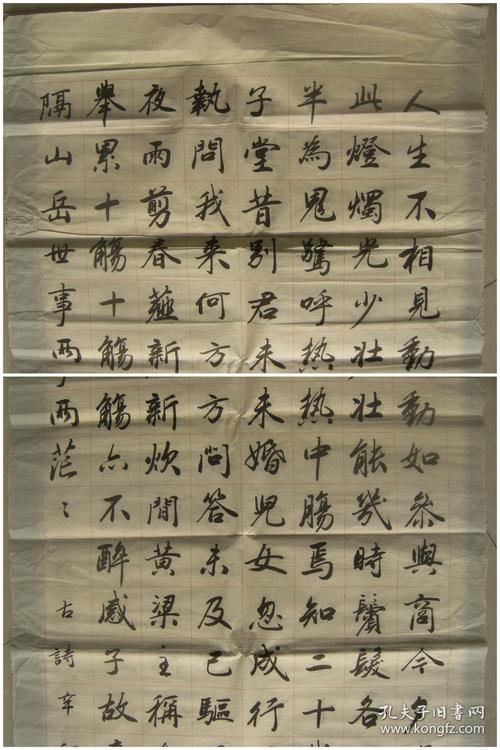 人生不相見動
此燈燭光少壯
半為鬼驚呼热
子堂昔别君未
執問我来何方
夜雨剪春韮新
舉累十觴十觴
隔山岳世事兩
動如參與商今夕
壯能幾時鬢髮各
热中腸焉知二十
未婚兒女忽成行
方問答未及已驅
新炊間黄梁主稱
觴亦不醉感子故
事兩茫〻 古詩辛
孔夫子旧書网
kongfz.com